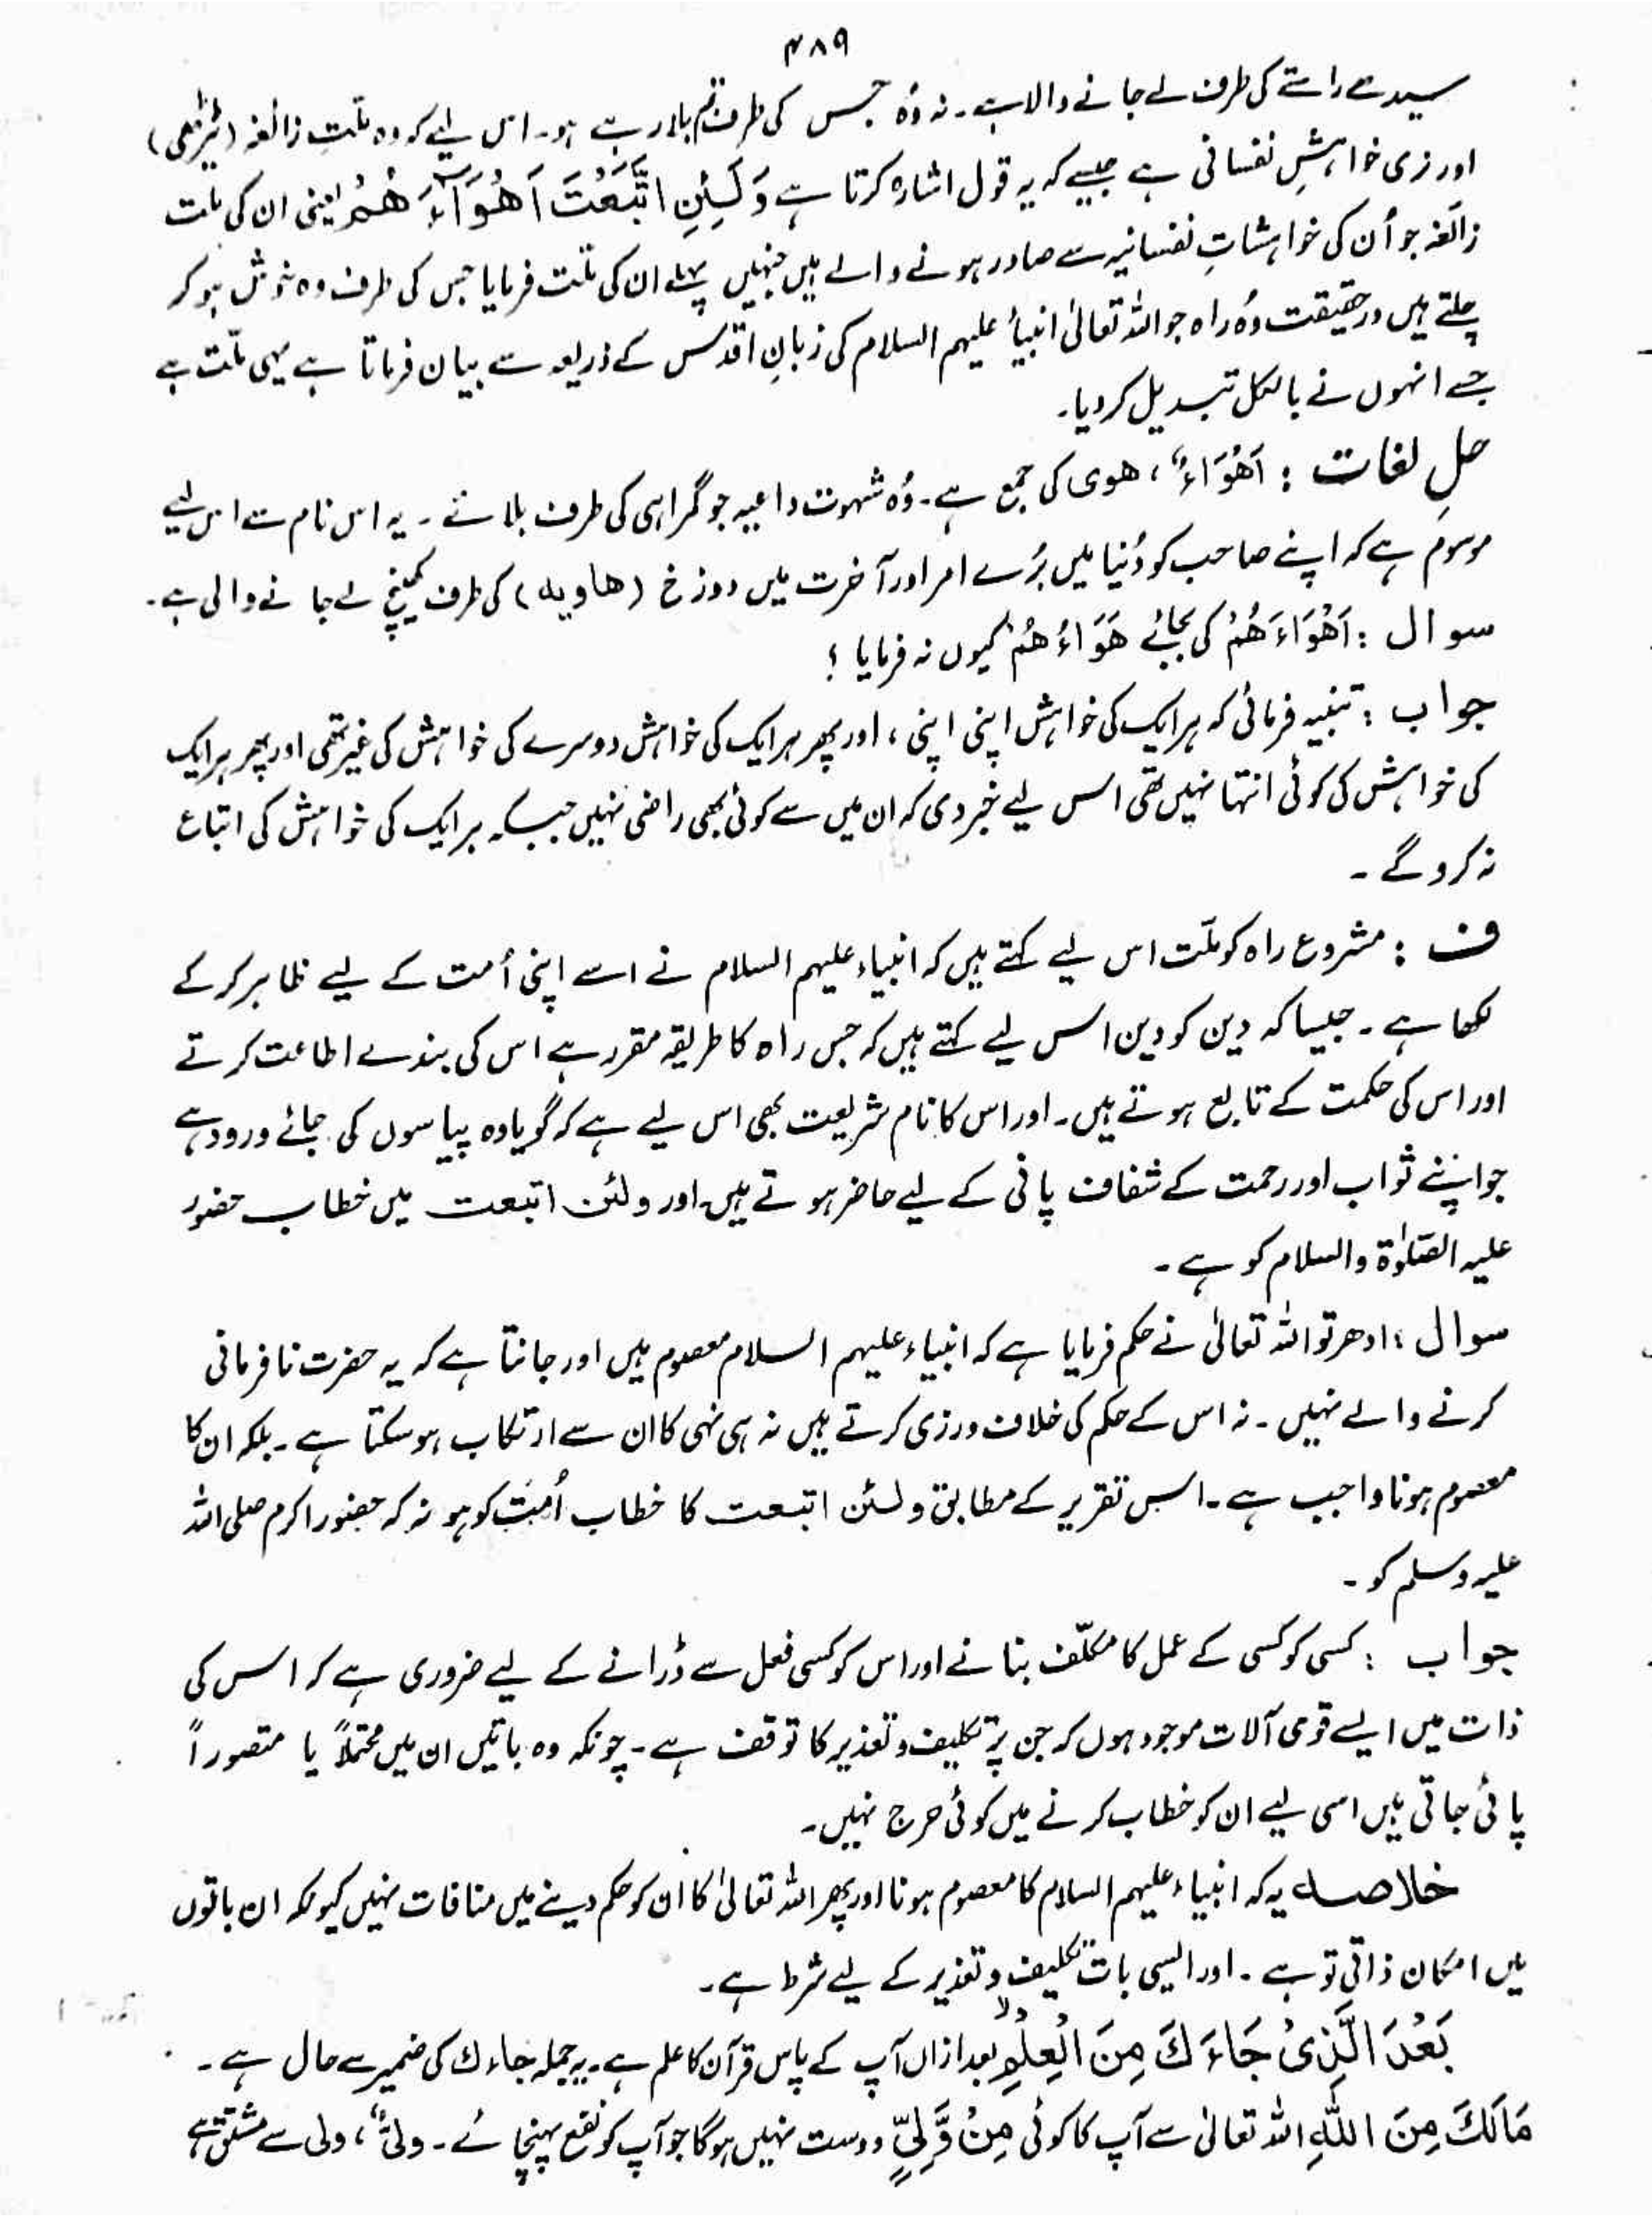 ۴۸۹
سیدھے راستے کی طرف لے جانے والا ہے۔ نہ وُہ جس کی طرف تم بلا رہے ہو۔ اس لیے کہ وہ ملّتِ زائغہ (ٹیڑھی)
اور نری خواہشِ نفسانی ہے جیسے کہ یہ قول اشارہ کرتا ہے وَلَئِنِ اتَّبَعْتَ اَهْوَآءَ هُمْ یعنی ان کی ملت
زائغہ جو اُن کی خواہشاتِ نفسانیہ سے صادر ہونے والے ہیں جنہیں پہلے ان کی ملّت فرمایا جس کی طرف وہ خوش ہو کر
چلتے ہیں درحقیقت وُہ راہ جو اللہ تعالیٰ انبیأ علیہم السلام کی زبانِ اقدس کے ذریعہ سے بیان فرماتا ہے یہی ملّت ہے
جسے انہوں نے بالکل تبدیل کر دیا۔
حل لغات : اَهْوَاءٌ ، ھوی کی جمع ہے۔ وُہ شہوت داعیہ جو گمراہی کی طرف بلائے۔ یہ اس نام سے اس لیے
موسوم ہے کہ اپنے صاحب کو دُنیا میں بُرے امر اور آخرت میں دوزخ (ھاویہ) کی طرف کھینچ لے جانے والی ہے۔
سوال : اَهْوَاءَ هُمْ کی بجائے هَوَاءُ هُمْ کیوں نہ فرمایا ؟
جواب : تنبیہ فرمائی کہ ہر ایک کی خواہش اپنی اپنی ، اور پھر ہر ایک کی خواہش دوسرے کی خواہش کی غیر تھی اور پھر ہر ایک
کی خواہش کی کوئی انتہا نہیں تھی اس لیے خبر دی کہ ان میں سے کوئی بھی راضی نہیں جب کہ ہر ایک کی خواہش کی اتباع
نہ کرو گے ۔
ف : مشروع راہ کو ملّت اس لیے کہتے ہیں کہ انبیاء علیہم السلام نے اسے اپنی اُمت کے لیے ظاہر کر کے
لکھا ہے ۔ جیسا کہ دین کو دین اس لیے کہتے ہیں کہ جس راہ کا طریقہ مقرر ہے اس کی بندے اطاعت کرتے
اور اس کی حکمت کے تابع ہوتے ہیں۔ اور اس کا نام شریعت بھی اس لیے ہے کہ گویا وہ پیاسوں کی جائے ورود ہے
جو اپنے ثواب اور رحمت کے شفاف پانی کے لیے حاضر ہوتے ہیں۔ اور ولئن اتبعت میں خطاب حضور
علیہ الصّلوٰۃ والسلام کو ہے ۔
سوال : ادھر تو اللہ تعالیٰ نے حکم فرمایا ہے کہ انبیاء علیہم السلام معصوم ہیں اور جانتا ہے کہ یہ حضرت نافرمانی
کرنے والے نہیں ۔ نہ اس کے حکم کی خلاف ورزی کرتے ہیں نہ ہی نہی کا ان سے ارتکاب ہو سکتا ہے ۔ بلکہ ان کا
معصوم ہونا واجب ہے ۔ اس تقریر کے مطابق ولئن اتبعت کا خطاب اُمت کو ہو نہ کہ حضور اکرم صلی اللہ
علیہ وسلم کو ۔
جواب : کسی کو کسی کے عمل کا مکلّف بنانے اور اس کو کسی فعل سے ڈرانے کے لیے ضروری ہے کہ اس کی
ذات میں ایسے قومی آلات موجود ہوں کہ جن پر تکلیف و تعذیر کا توقف ہے ۔ چونکہ وہ باتیں ان میں محتملاً یا متصوراً
پائی جاتی ہیں اسی لیے ان کو خطاب کرنے میں کوئی حرج نہیں۔
خلاصہ یہ کہ انبیاء علیہم السلام کا معصوم ہونا اور پھر اللہ تعالیٰ کا ان کو حکم دینے میں منافات نہیں کیونکہ ان باتوں
میں امکان ذاتی تو ہے ۔ اور ایسی بات تکلیف و تعذیر کے لیے شرط ہے ۔
بَعْدَ الَّذِیْ جَاءَ كَ مِنَ الْعِلْمِ لا بعد ازاں آپ کے پاس قرآن کا علم ہے۔ یہ جملہ جاءك کی ضمیر سے حال ہے ۔
مَالَكَ مِنَ اللّٰهِ اللہ تعالیٰ سے آپ کا کوئی مِنْ وَّلِیٍّ دوست نہیں ہوگا جو آپ کو نفع پہنچائے ۔ ولیٌّ ، ولی سے مشتق ہے